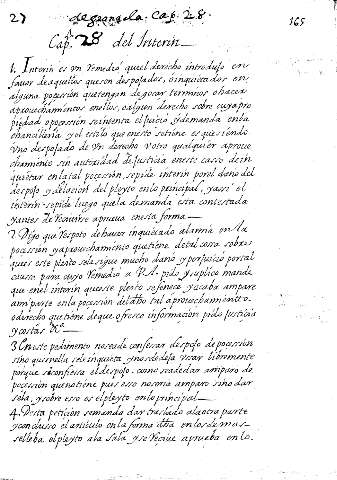 27 de granada. Cap. 28. 165
Cap.º 28 del Interin
1. Interin es vn Remedio quel derecho introdujo en
favor de aquellos que son despojados, ò inquietados en
alguna poçession que tengan de goçar terminos o haçer
aprovechamientos en ellos, o algun derecho sobre cuya pro
piedad o poçession se intenta el Juiçio y demanda en la
chançilleria y el estilo que en esto se tiene es que siendo
Uno despojado de Un derecho Votro qualquier aprove
chamiento sin autoridad de Justicia en este casso de in
quietar en la tal poçession, se pide interin por el daño del
despojo y dilaçion del pleyto en lo principal, y assi el
interin se pide luego que la demanda esta contestada
y antes de Reçiuirse aprueua en esta forma —
2. Digo que Respeto de hauer inquietado a la mia en la
poçession y aprovechamiento que tiene de tal cosa sobre
que es este pleyto se la sigue mucho daño y perjuiçio por tal
causa para cuyo Remedio a V.A. pido y suplico mande
que en el interin que este pleyto se feneçe, y acaba ampare
a mi parte en la poçession del dho tal aprovechamiento.
o derecho que tiene de que ofresco información pido Justicia
y costas &c.ª
3. En este pedimento no se ade confesar despojo de poçession
sino que solo se le inquieta y no se de deja Usar libremente
porque si confiesa el despojo, como se a de dar amparo de
poçession que no tiene pues esso no seria amparo sino dar
sela, y sobre esso es el pleyto en lo principal —
4. Desta petiçion se manda dar traslado a la otra parte
y concluso el articulo en la forma dha en los demas
se lleba el pleyto a la Sala y se Reçiue aprueba en lo.